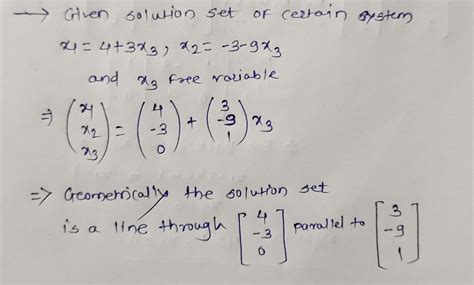 → Given solution set of certain system
x1 = 4+3x3, x2 = -3-9x3
and x3 free variable
⇒ (x1 x2 x3) = (4 -3 0) + (3 -9 1) x3
⇒ Geometrically the solution set
is a line through [4 -3 0] parallel to [3 -9 1]